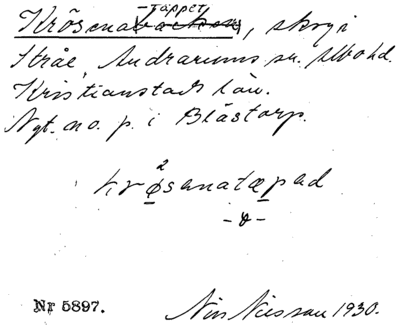 -täppet
Krösenabacken, skog i
Stråe, Andrarums sn. Albo hd.
Kristianstads län.
Ngt. no. p. i Blåstorp.
krø²sanatæpad
-ə-
Nr 5897.
Nils Nilsson 1930.